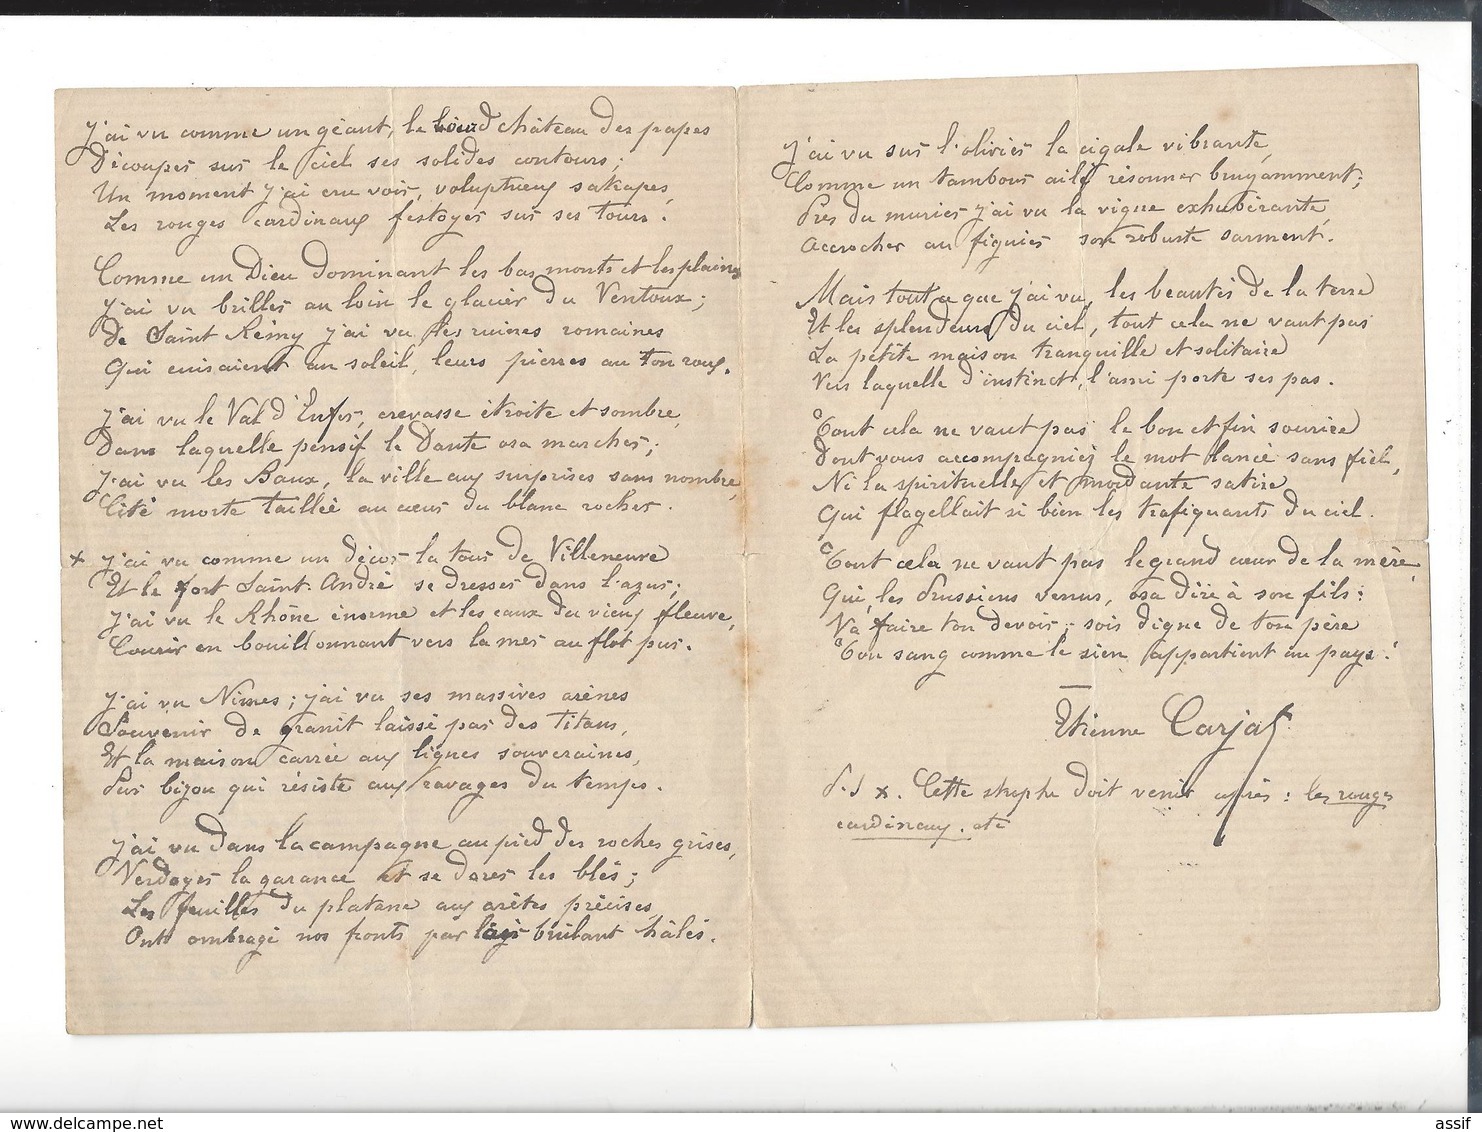 J'ai vu comme un géant, le lourd château des papes
Découper sur le ciel ses solides contours;
Un moment j'ai cru voir, voluptueux satrapes,
Les rouges cardinaux festoyer sur ses tours.
Comme un Dieu dominant les bas monts et les plaines
J'ai vu briller au loin le glacier du Ventoux;
De Saint Rémy j'ai vu les ruines romaines
Qui cuisaient au soleil, leurs pierres au ton roux.
J'ai vu le Val d'Enfer, crevasse étroite et sombre,
Dans laquelle pensif le Dante osa marcher;
J'ai vu les Baux, la ville aux surprises sans nombre,
Cité morte taillée au cœur du blanc rocher.
x J'ai vu comme un décor la tour de Villeneuve
Et le fort Saint-André se dresser dans l'azur;
J'ai vu le Rhône énorme et les eaux du vieux fleuve,
Courir en bouillonnant vers la mer au flot pur.
J'ai vu Nimes; j'ai vu ses massives arènes
Souvenir de granit laissé par des titans,
Et la maison carrée aux lignes souveraines,
Pur bijou qui résiste aux ravages du temps.
J'ai vu dans la campagne au pied des roches grises,
Verdoyer la garance et se dorer les blés;
Les feuilles du platane aux arêtes précises,
Ont ombragé nos fronts par l'air brûlant hâlés.
J'ai vu sur l'olivier la cigale vibrante,
Comme un tambour ailé résonner bruyamment;
Près du murier j'ai vu la vigne exhubérante,
Accrocher au figuier son robuste sarment.
Mais tout ce que j'ai vu, les beautés de la terre
Et les splendeurs du ciel, tout cela ne vaut pas
La petite maison tranquille et solitaire
Vers laquelle d'instinct, l'ami porte ses pas.
Tout cela ne vaut pas le bon et fin sourire
Dont vous accompagniez le mot lancé sans fiel,
Ni la spirituelle et mordante satire
Qui flagellait si bien les trafiquants du ciel.
Tout cela ne vaut pas le grand cœur de la mère,
Qui, les Prussiens venus, osa dire à son fils:
Va faire ton devoir; sois digne de ton père
Ton sang comme le sien appartient au pays!
Etienne Carjat
P.S x. Cette strophe doit venir après: les rouges
cardinaux. etc
assif
delcampe.net